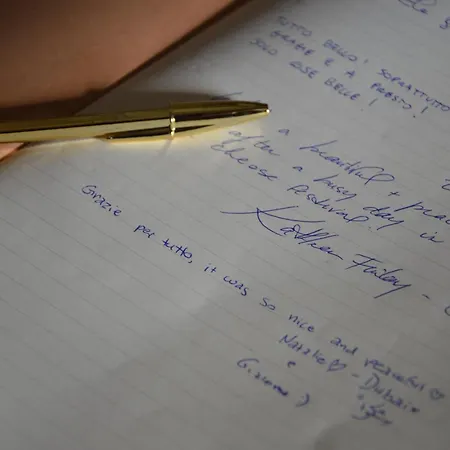 TUTTO BELLO! SOPRATTUTTO
GRAZIE E A PRESTO!
SOLO COSE BELLE!
a beautiful +
after a busy day in
cheese festival!
Kathleen Finley -
Grazie per tutto, it was so nice and peaceful ♡
♡ - Dubai
e
:)